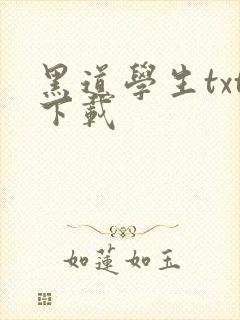 黑道學生txt
下載
如蓮如玉